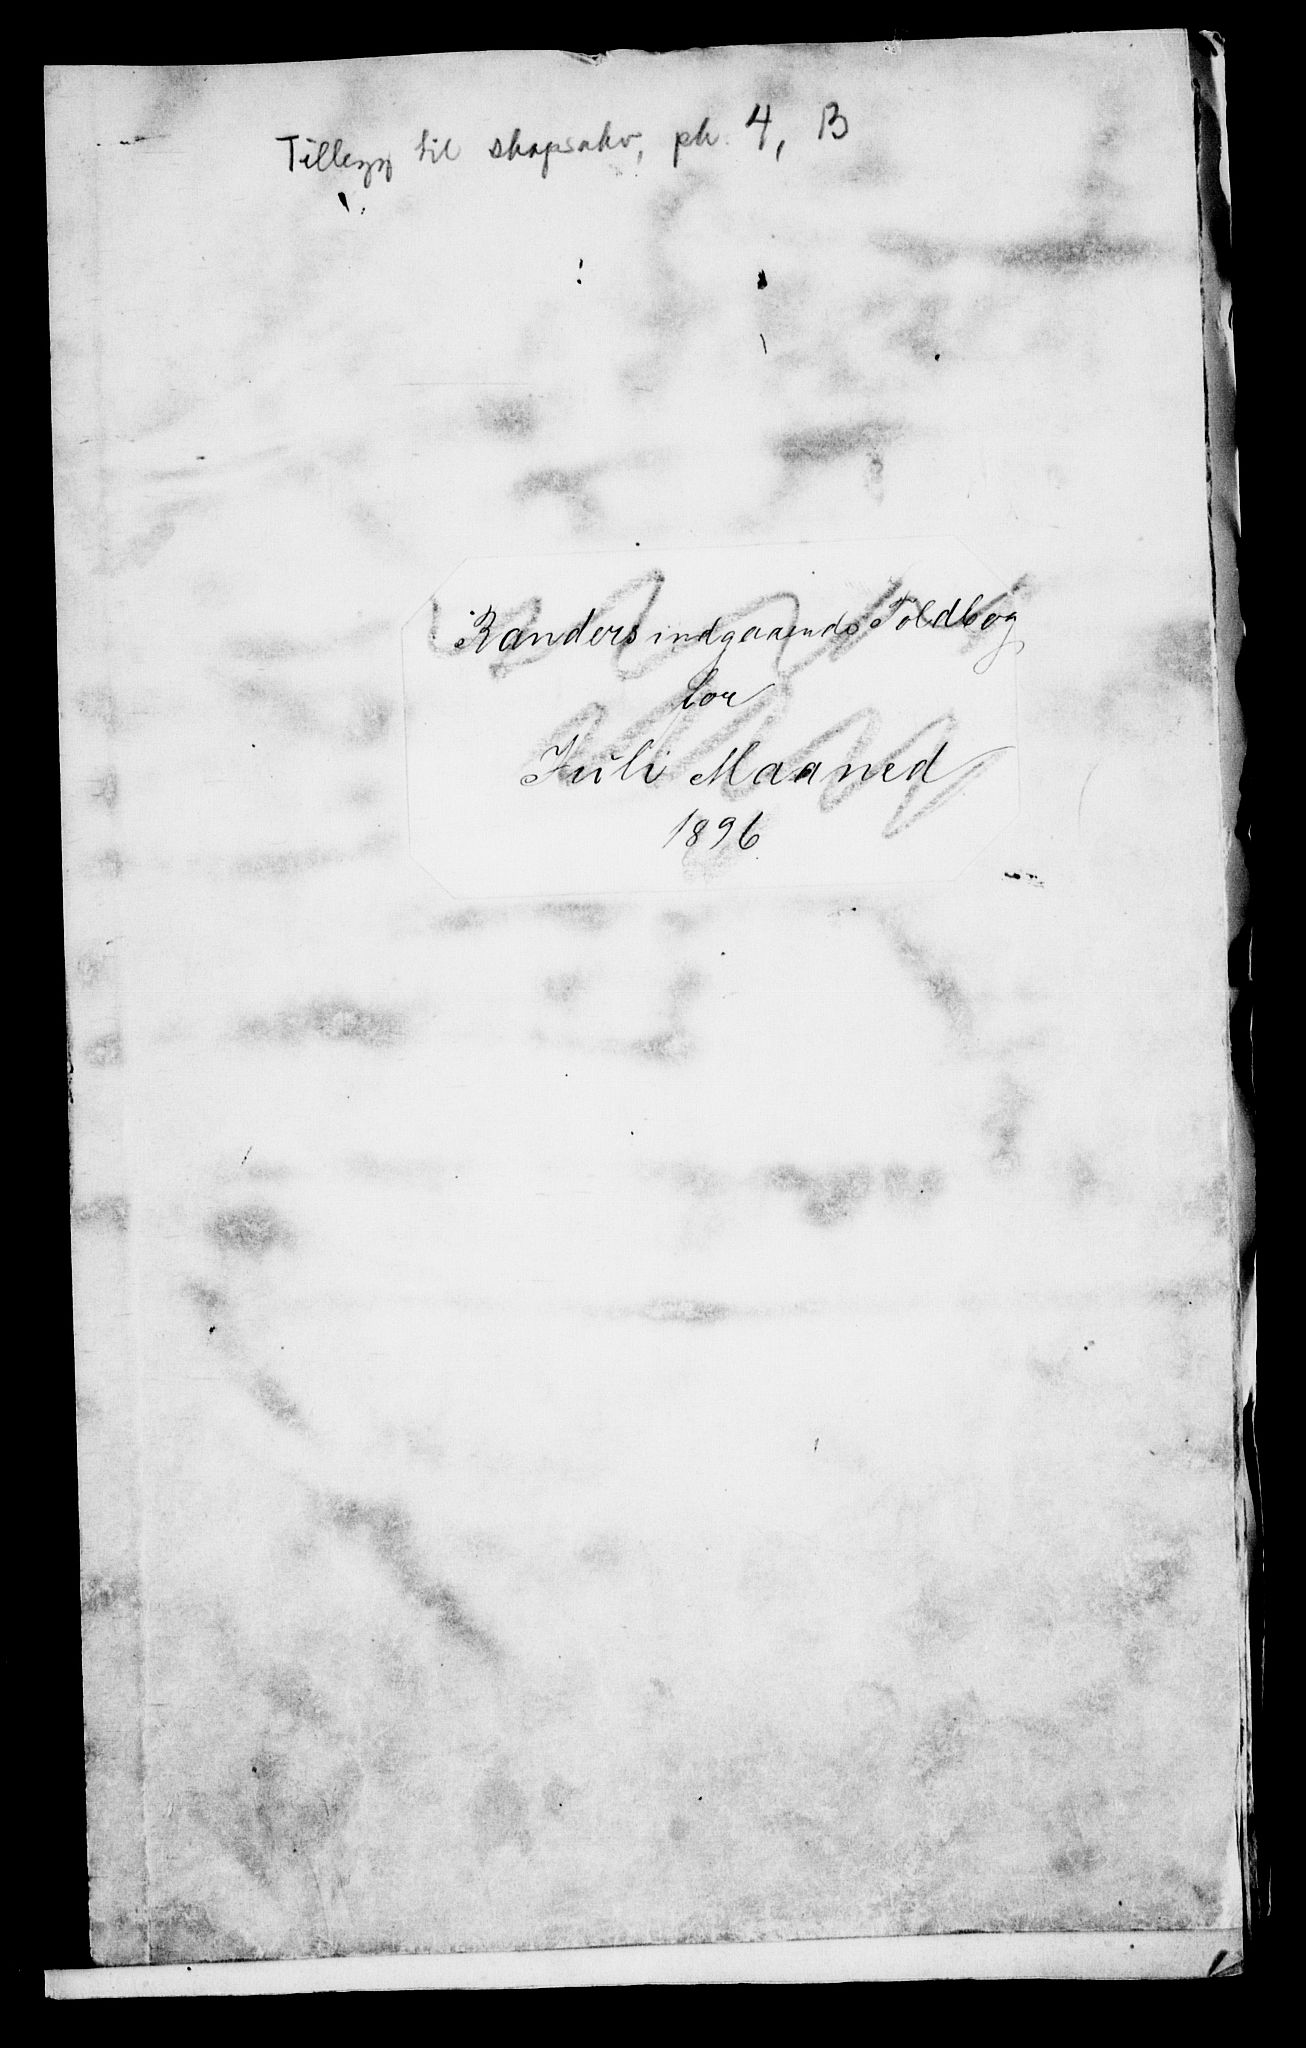 Tillegg til skapsakv, pk. 4, B
Randers indgaaende Toldbog
for
Juli Maaned
1896